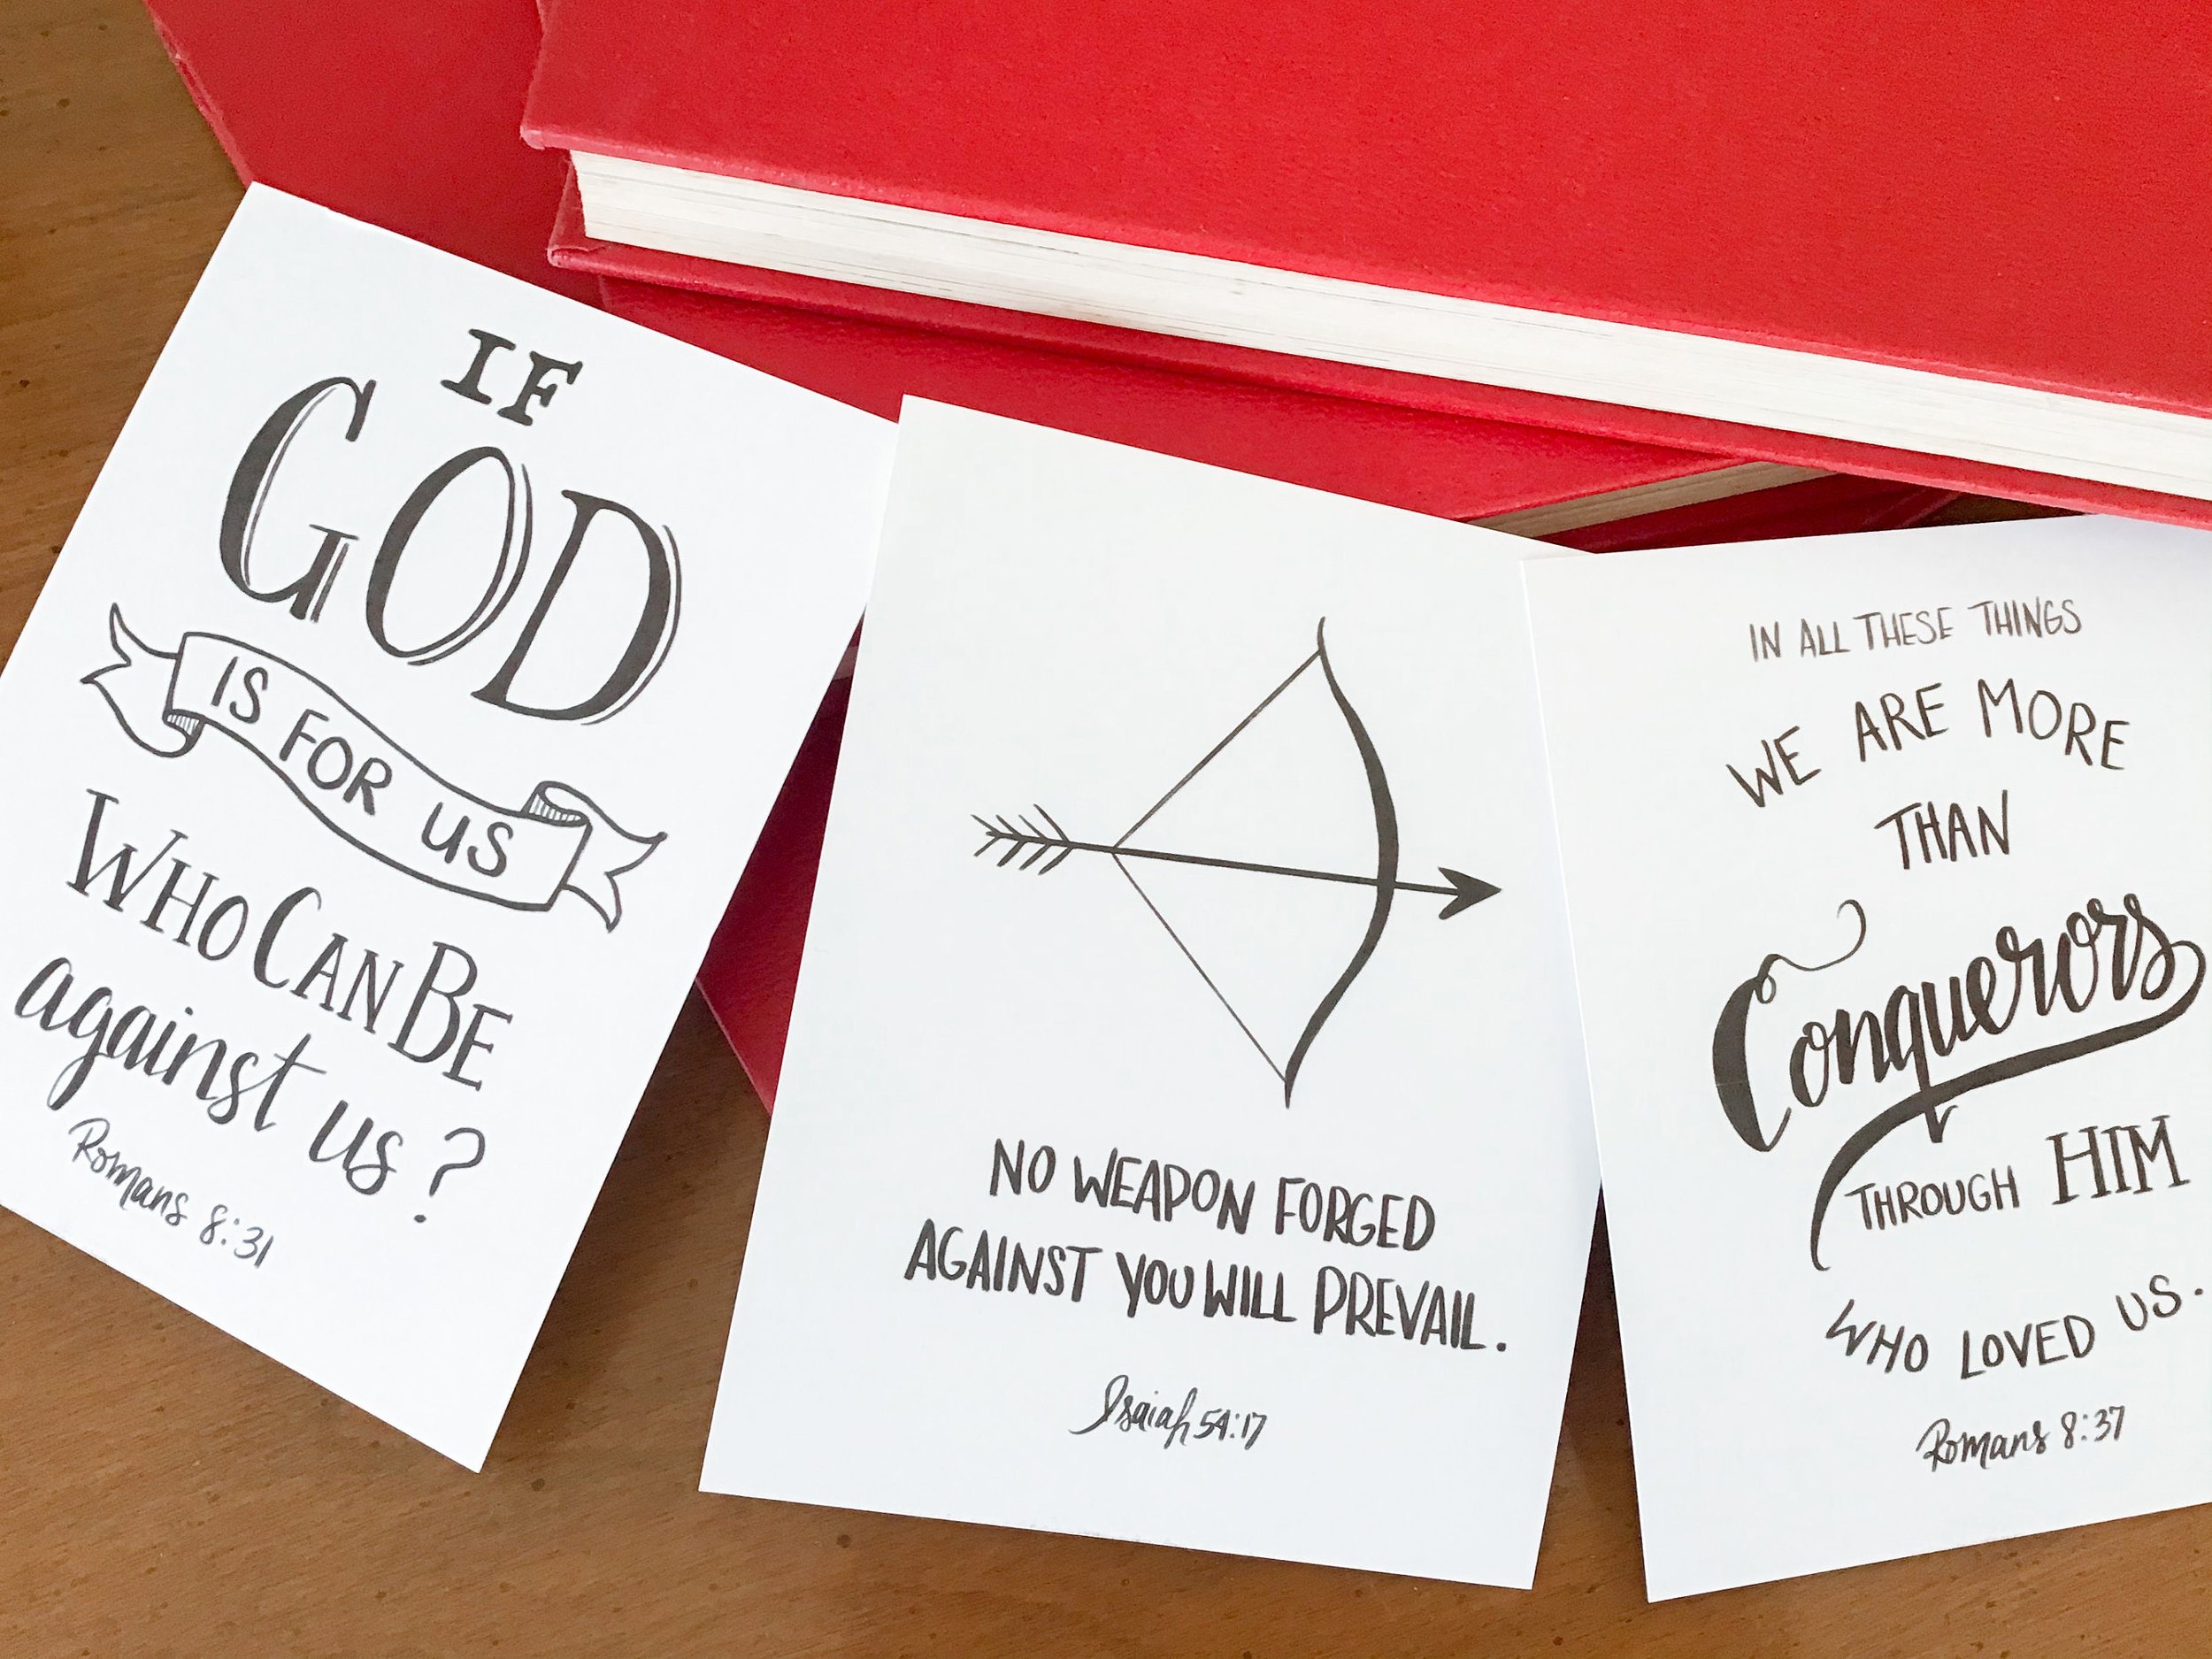 IF
GOD
IS FOR US
WHO CAN BE
against us?
Romans 8:31
NO WEAPON FORGED
AGAINST YOU WILL PREVAIL.
Isaiah 54:17
IN ALL THESE THINGS
WE ARE MORE
THAN
Conquerors
THROUGH HIM
WHO LOVED US.
Romans 8:37